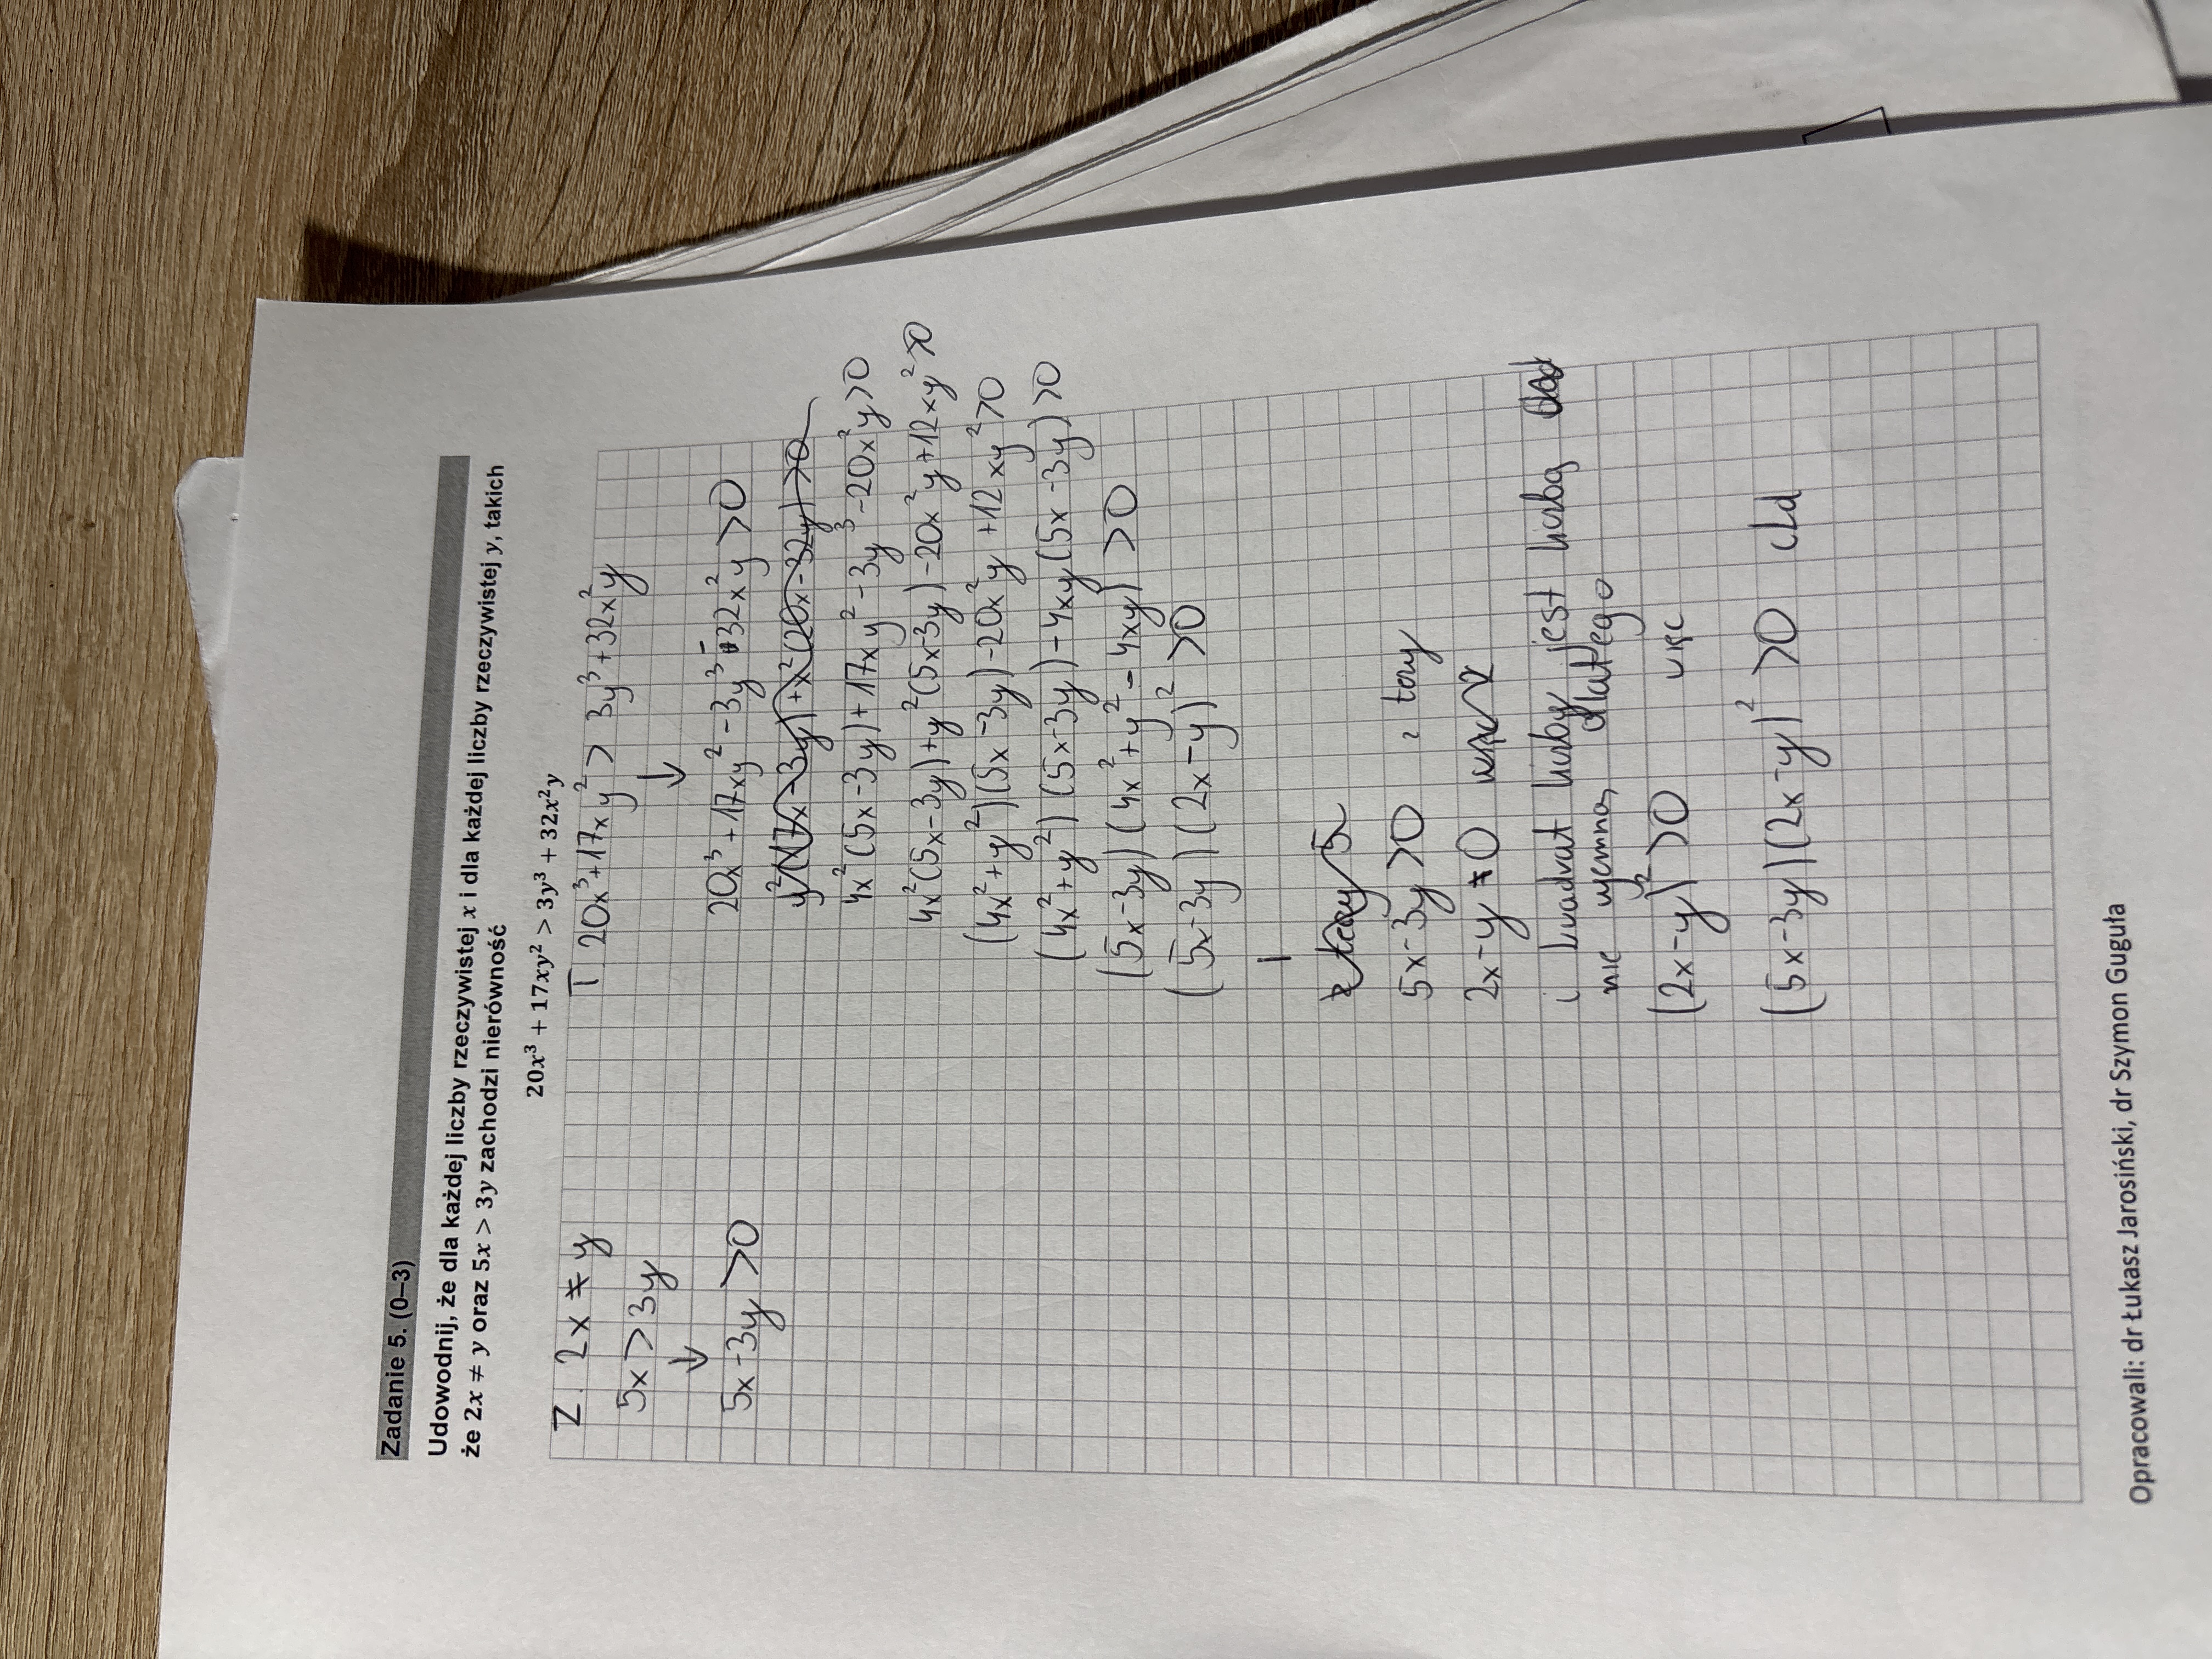 Zadanie 5. (0–3)
Udowodnij, że dla każdej liczby rzeczywistej x i dla każdej liczby rzeczywistej y, takich
że 2x ≠ y oraz 5x > 3y zachodzi nierówność
20x³ + 17xy² > 3y³ + 32x²y
Z. 2x ≠ y
5x > 3y
↓
5x-3y > 0
T 20x³+17xy² > 3y³+32x²y
↓
20x³+17xy²-3y³-32x²y > 0
y²(17x-3y)+x²(20x-32y)>0
4x²(5x-3y)+17xy²-3y³-20x²y>0
4x²(5x-3y)+y²(5x-3y)-20x²y+12xy²>0
(4x²+y²)(5x-3y)-20x²y+12xy²>0
(4x²+y²)(5x-3y)-4xy(5x-3y)>0
(5x-3y)(4x²+y²-4xy)>0
(5x-3y)(2x-y)²>0
5x-3y>0 z tezy
2x-y≠0
i kwadrat liczby jest liczbą
nie ujemną, dlatego
(2x-y)²>0 więc
(5x-3y)(2x-y)²>0 cld
Opracowali: dr Łukasz Jarosiński, dr Szymon Guguła